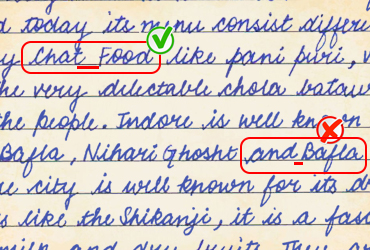 d today its menu consist differe
y Chat Food like pani puri,
he very delectable chola batau
the people. Indore is well known
Bafla, Nihari Ghosht and Bafla
e city is well known for its d
s like the Shikanji, it is a fas